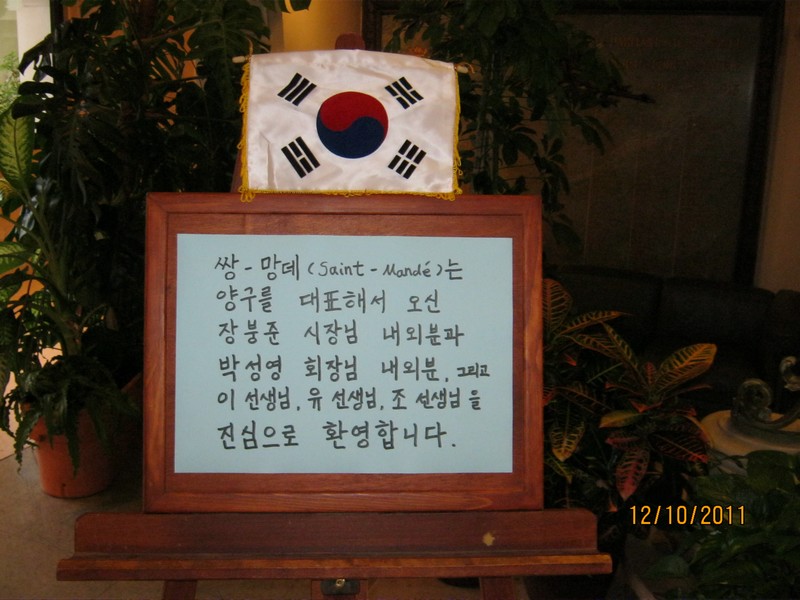 쌍-망데 (Saint-Mandé)는
양구를 대표해서 오신
장붕준 시장님 내외분과
박성영 회장님 내외분, 그리고
이 선생님, 유 선생님, 조 선생님을
진심으로 환영합니다.
12/10/2011